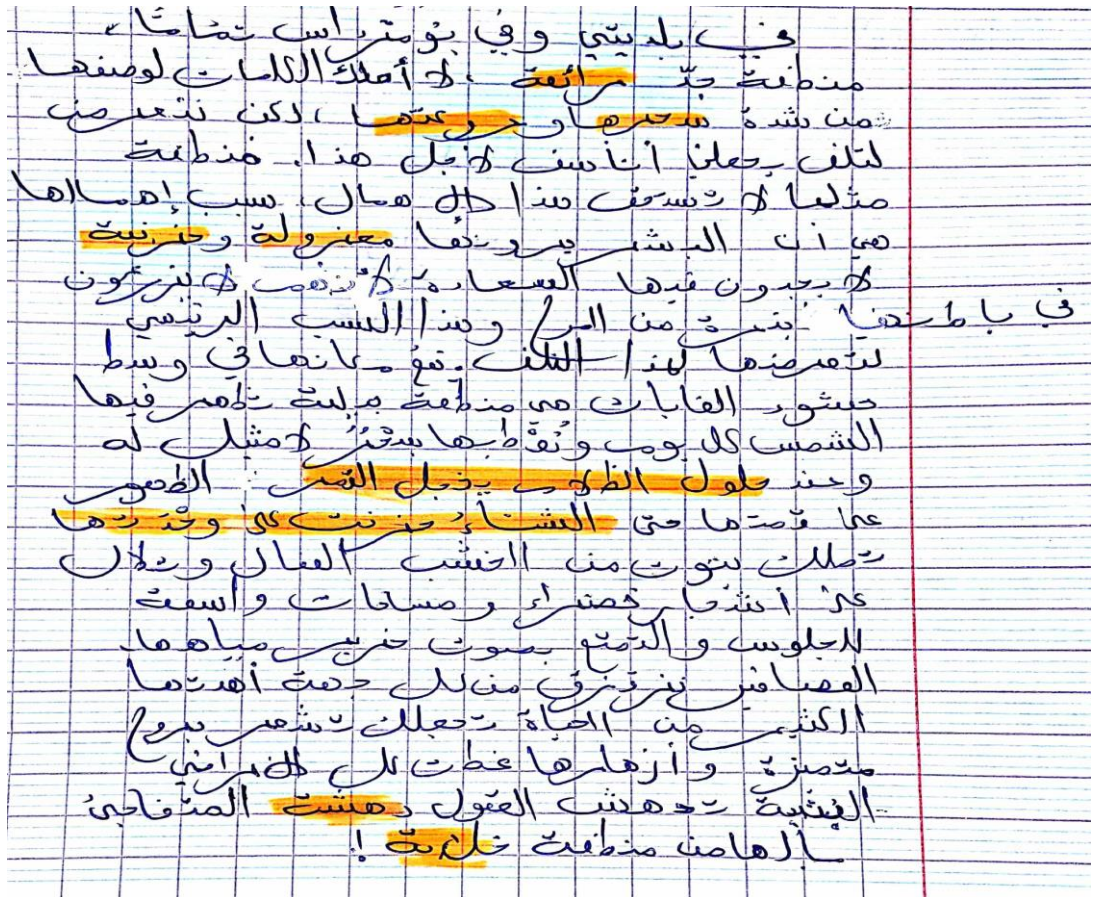 في بلديتي وفي بومتراس تماما،
منطقة جدّ رائعة، لا أملك الكلمات لوصفها
من شدة سحرها وروعتها، لكن تتعرض
لتلف يجعلنا أتأسف لأجل هذا. منطقة
مثلها لا تستحق هذا الإهمال، سبب إهمالها
هي أن البشر يرونها معزولة وحزينة
لا يجدون فيها السعادة لأنهم لا يزرعون
في باطنها بذرة من المرح وهذا السبب الرئيسي
لتعرضها لهذا التلف. تقع مكانها في وسط
الغابات هي منطقة جبلية تظهر فيها
الشمس كل يوم وتغطيها لا مثيل له
وعند حلول الظلام يخجل القمر الظهور
على قمتها حتى الشتاءُ حزنت على وحدتها
تملك بيوت من الخشب الفعال وتلال
على أشجار خضراء ومساحات واسعة
للجلوس والتمتع بصوت خرير مياهها
العصافير تزقزق من كل جهة أهدتها
الكثير من الحياة تجعلك تشعر بروح
متميزة وأزهارها غطت كل الأراضي
تدهش العقول دهشت المتفاجئ
يالها من منطقة خلابة!